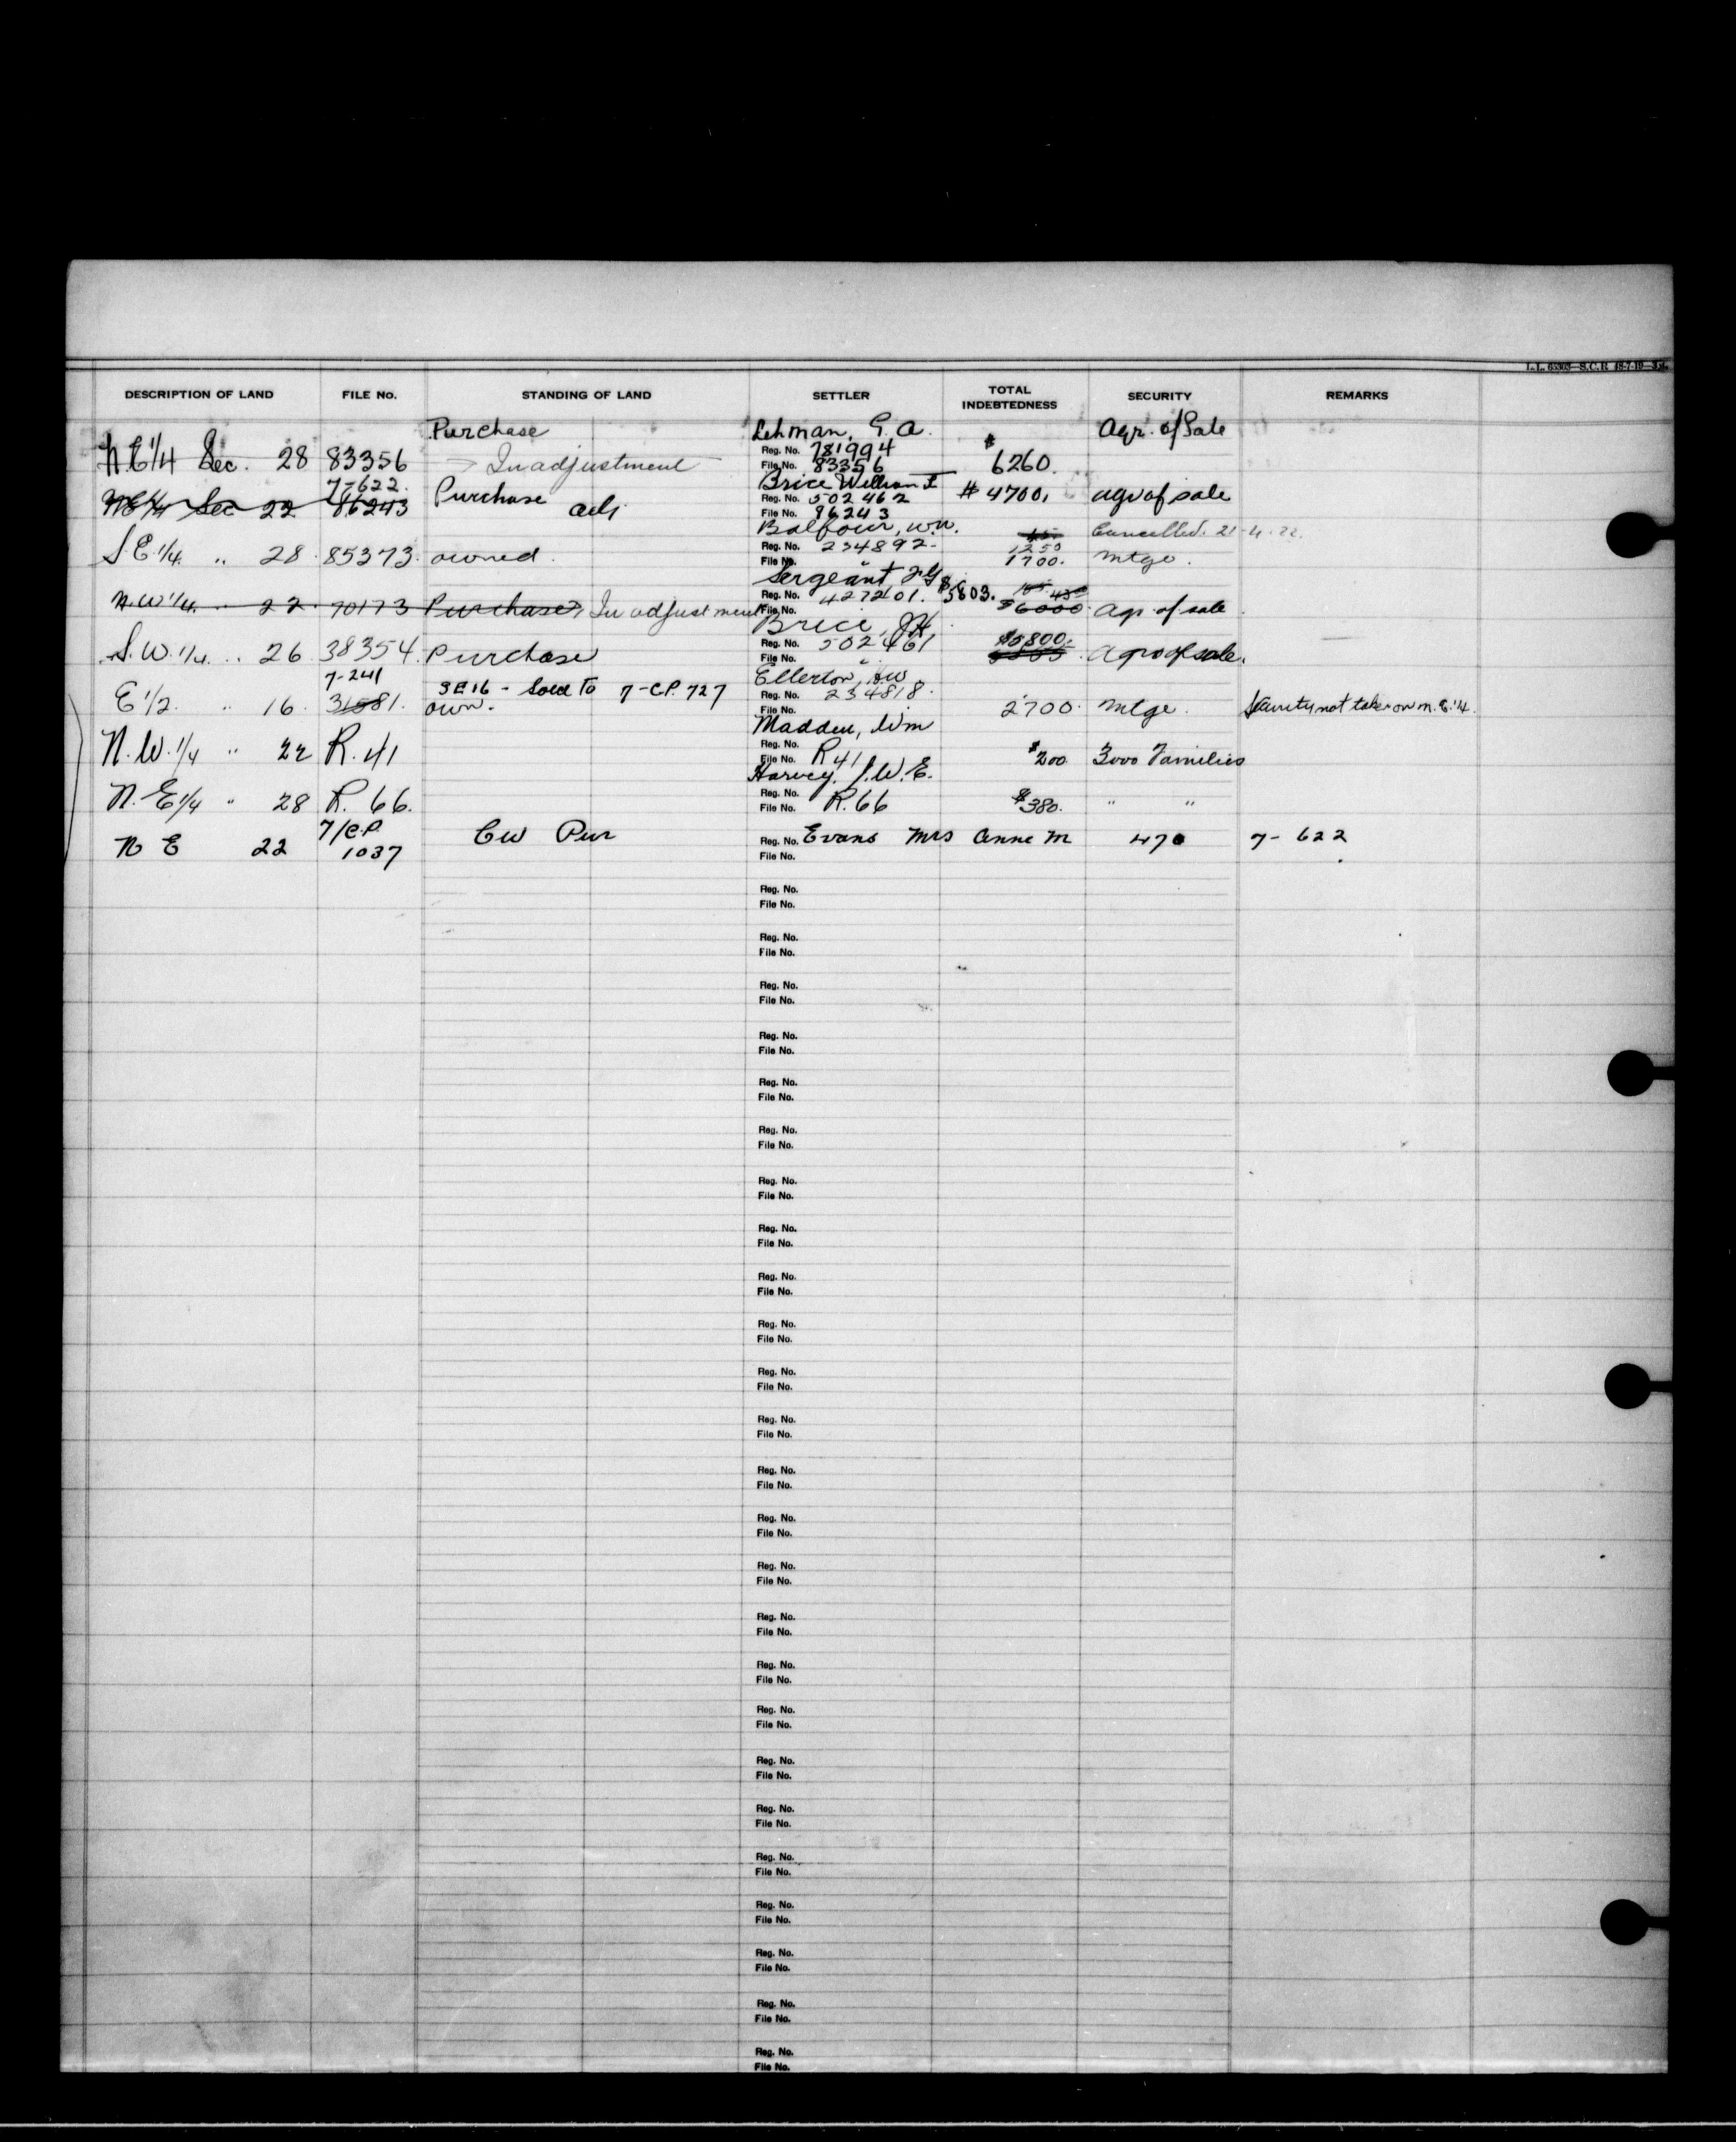 DESCRIPTION OF LAND FILE No. STANDING OF LAND SETTLER TOTAL INDEBTEDNESS SECURITY REMARKS
Purchase Lehman, G. A. Agr. of Sale
N.E 1/4 Sec. 28 83356 In adjustment Reg. No. 781994 $ 6260.
File No. 83356
7-622. Brice William
NE 1/4 Sec 22 86243 Purchase adj. Reg. No. 502462 $ 4700. agr of sale
File No. 86243
Balfour, W.W. Cancelled. 21-4-22.
S.E 1/4 " 28. 85373. owned. Reg. No. 234892. 1250
File No. 1700. mtge.
Sergeant
N.W 1/4. " 22. 70173 Purchase, In adjustment Reg. No. 427201. $5603. $6000. Agr. of sale
File No.
Brice, J.H.
S.W. 1/4. " 26. 38354. Purchase Reg. No. 502461 $5800. Agr of sale.
File No. "
7-241 SE 16 - Sold to 7-C.P. 727 Ellerton, H.W
E 1/2. " 16. 31581. own. Reg. No. 234818. 2700. mtge. Security not taken on N.E. 1/4.
File No.
Madden, Wm
N.W. 1/4 " 22 R. 41 Reg. No. $200 3000 Families
File No. R 41
Harvey. J.W.E.
N.E 1/4 " 28 R. 66. Reg. No. R. 66 $380. " "
File No.
7/C.P. 1037
N E 22 CW Pur Reg. No. Evans Mrs Anne M 470 7-622
File No.
Reg. No.
File No.
Reg. No.
File No.
Reg. No.
File No.
Reg. No.
File No.
Reg. No.
File No.
Reg. No.
File No.
Reg. No.
File No.
Reg. No.
File No.
Reg. No.
File No.
Reg. No.
File No.
Reg. No.
File No.
Reg. No.
File No.
Reg. No.
File No.
Reg. No.
File No.
Reg. No.
File No.
Reg. No.
File No.
Reg. No.
File No.
Reg. No.
File No.
Reg. No.
File No.
Reg. No.
File No.
Reg. No.
File No.
Reg. No.
File No.
Reg. No.
File No.
Reg. No.
File No.
Reg. No.
File No.